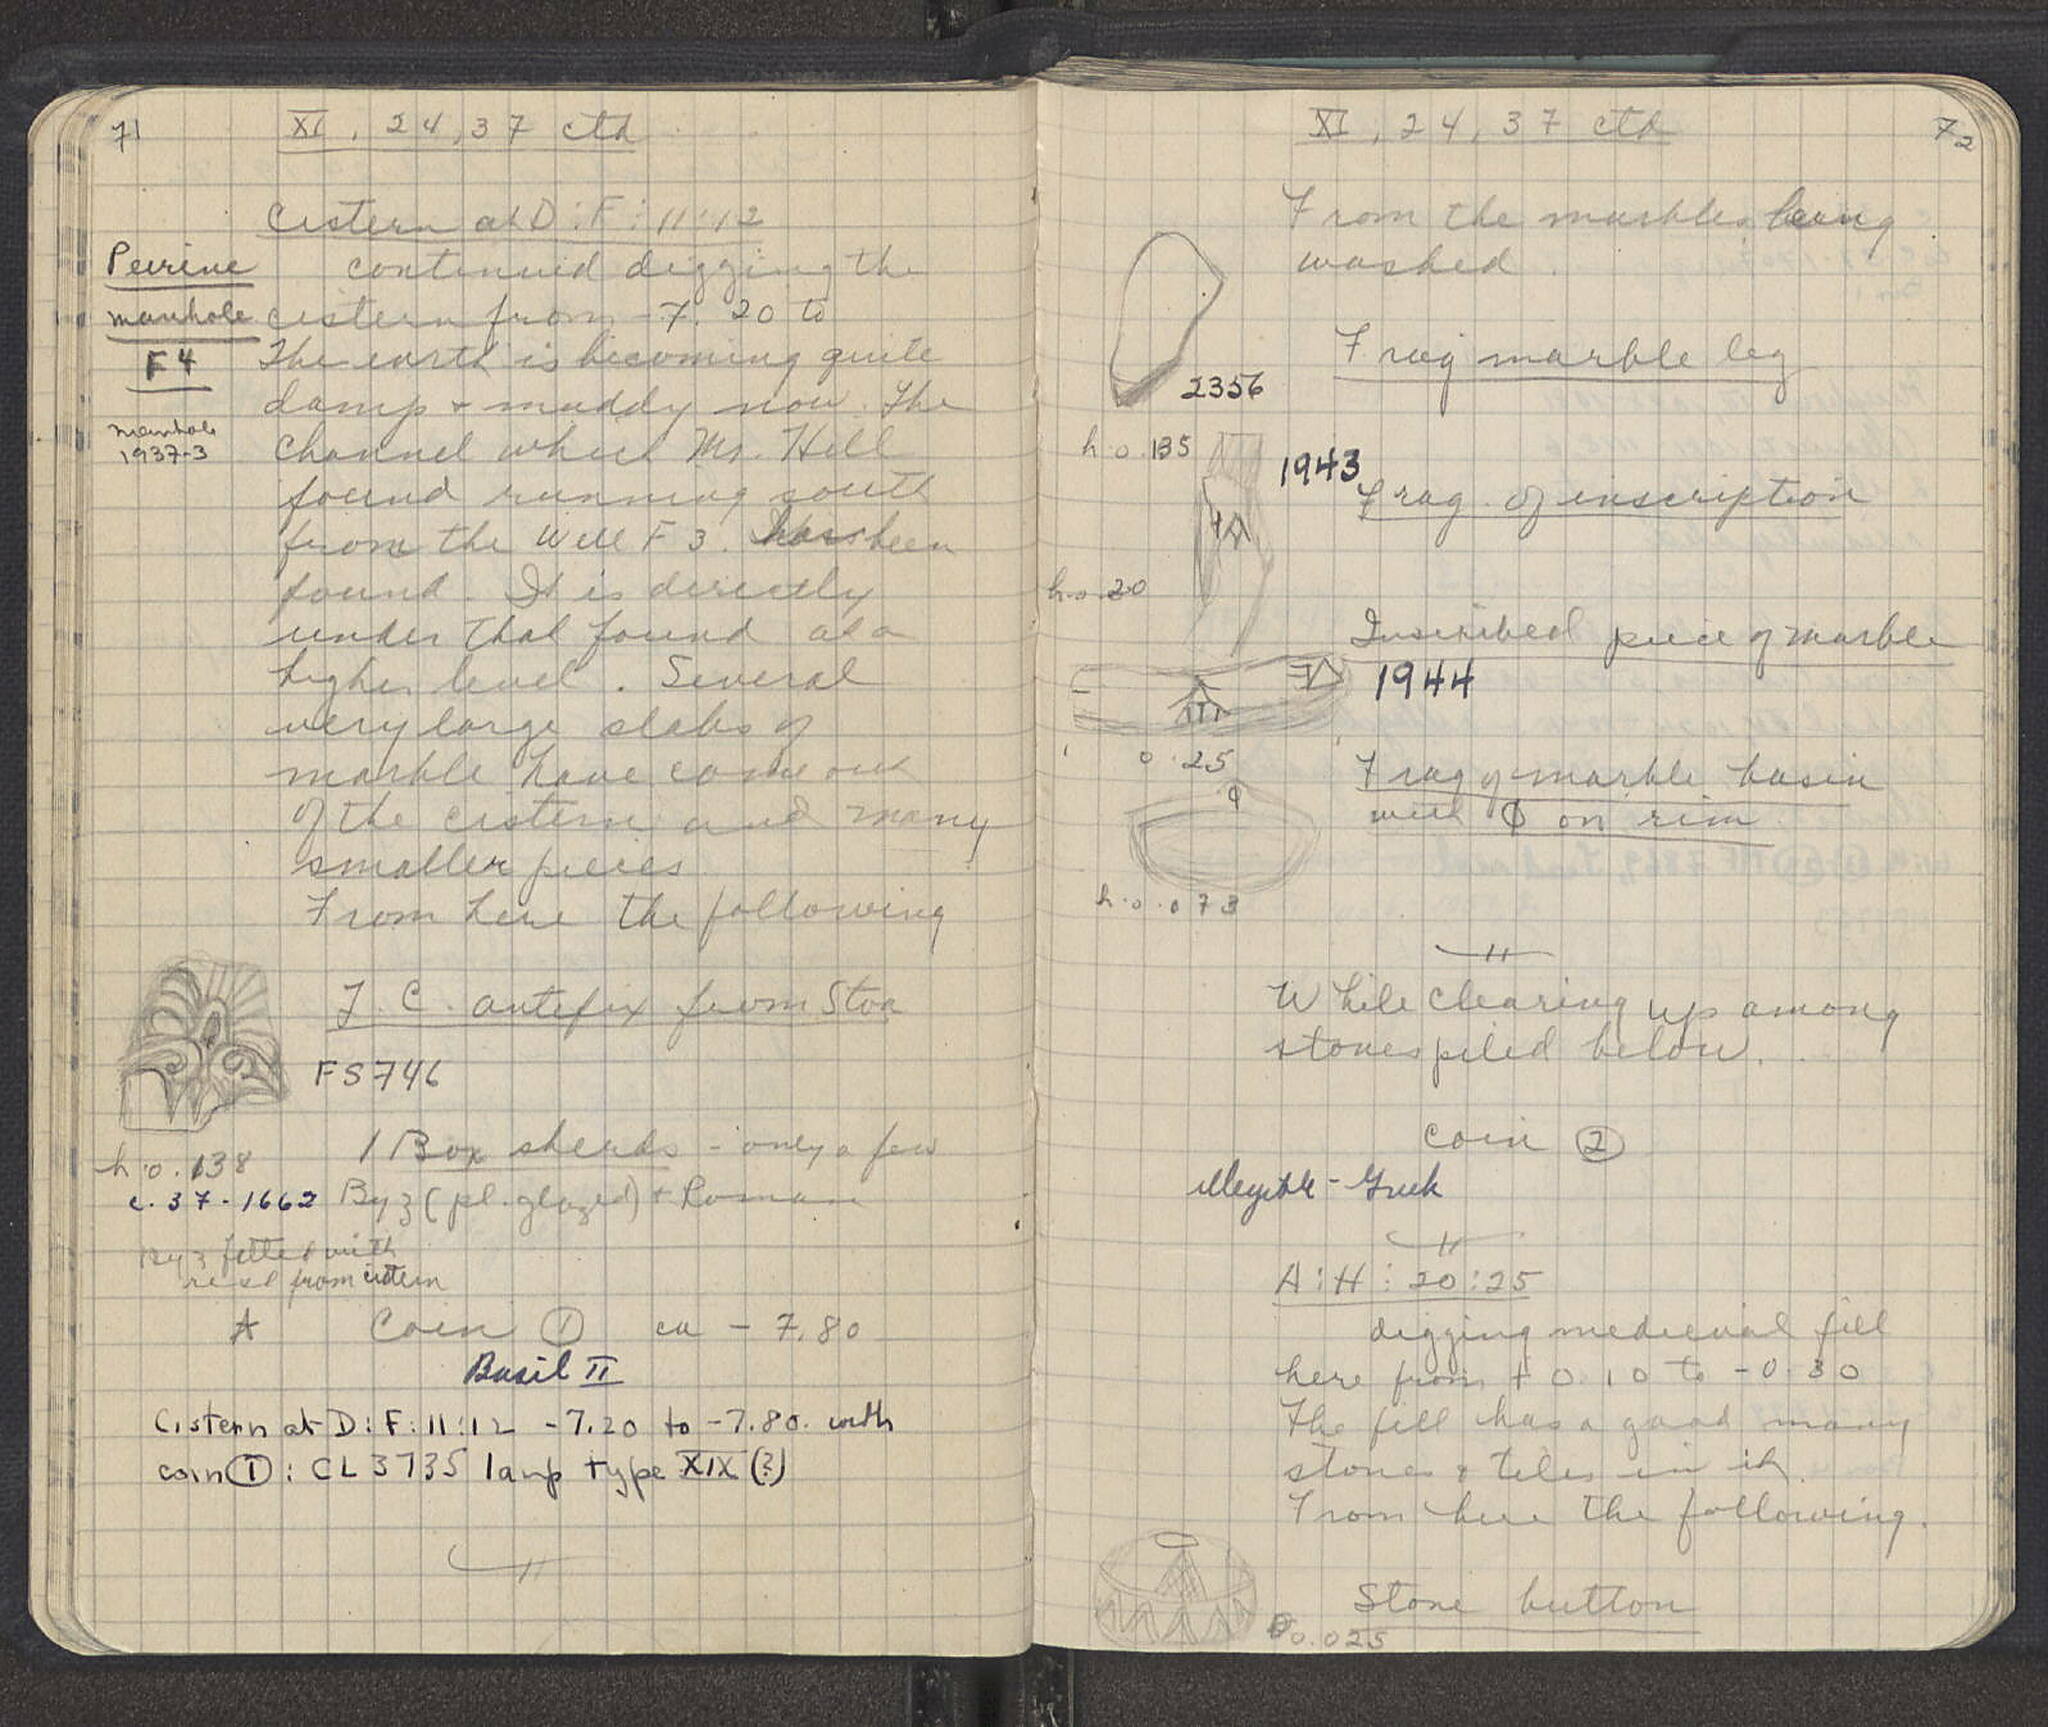 71
XI, 24, 37 ctd
Cistern at D:F:11:12
Peirine
manhole
F4
manhole
1937-3
continued digging the
cistern from -7.20 to
The earth is becoming quite
damp + muddy now. The
channel which Mr. Hill
found running south
from the Well F 3. has been
found. It is directly
under that found at a
higher level. Several
very large slabs of
marble have come out
of the cistern and many
smaller pieces
From here the following
T.C. antefix from Stoa
FS746
h.0.138
1 Box sherds - only a few
c.37-1662 Byz (pl. glazed) + Roman
Byz fitted with
rest from cistern
A Coin ① ca - 7,80
Basil II
Cistern at D:F:11:12 -7.20 to -7.80. with
coin ①: CL 3735 lamp type XIX (?)
XI, 24, 37 ctd
72
From the marbles being
washed.
Frag marble leg
2356
h.0.135
1943
Frag. of inscription
h.0.20
Inscribed piece of marble
1944
0.25
Frag of marble basin
with Φ on rim
h.0.073
While clearing up among
stones piled below.
coin ②
illegible - Greek
A:H:20:25
digging medieval fill
here from +0.10 to -0.30
The fill has a good many
stones & tiles in it.
From here the following.
Stone button
0.025